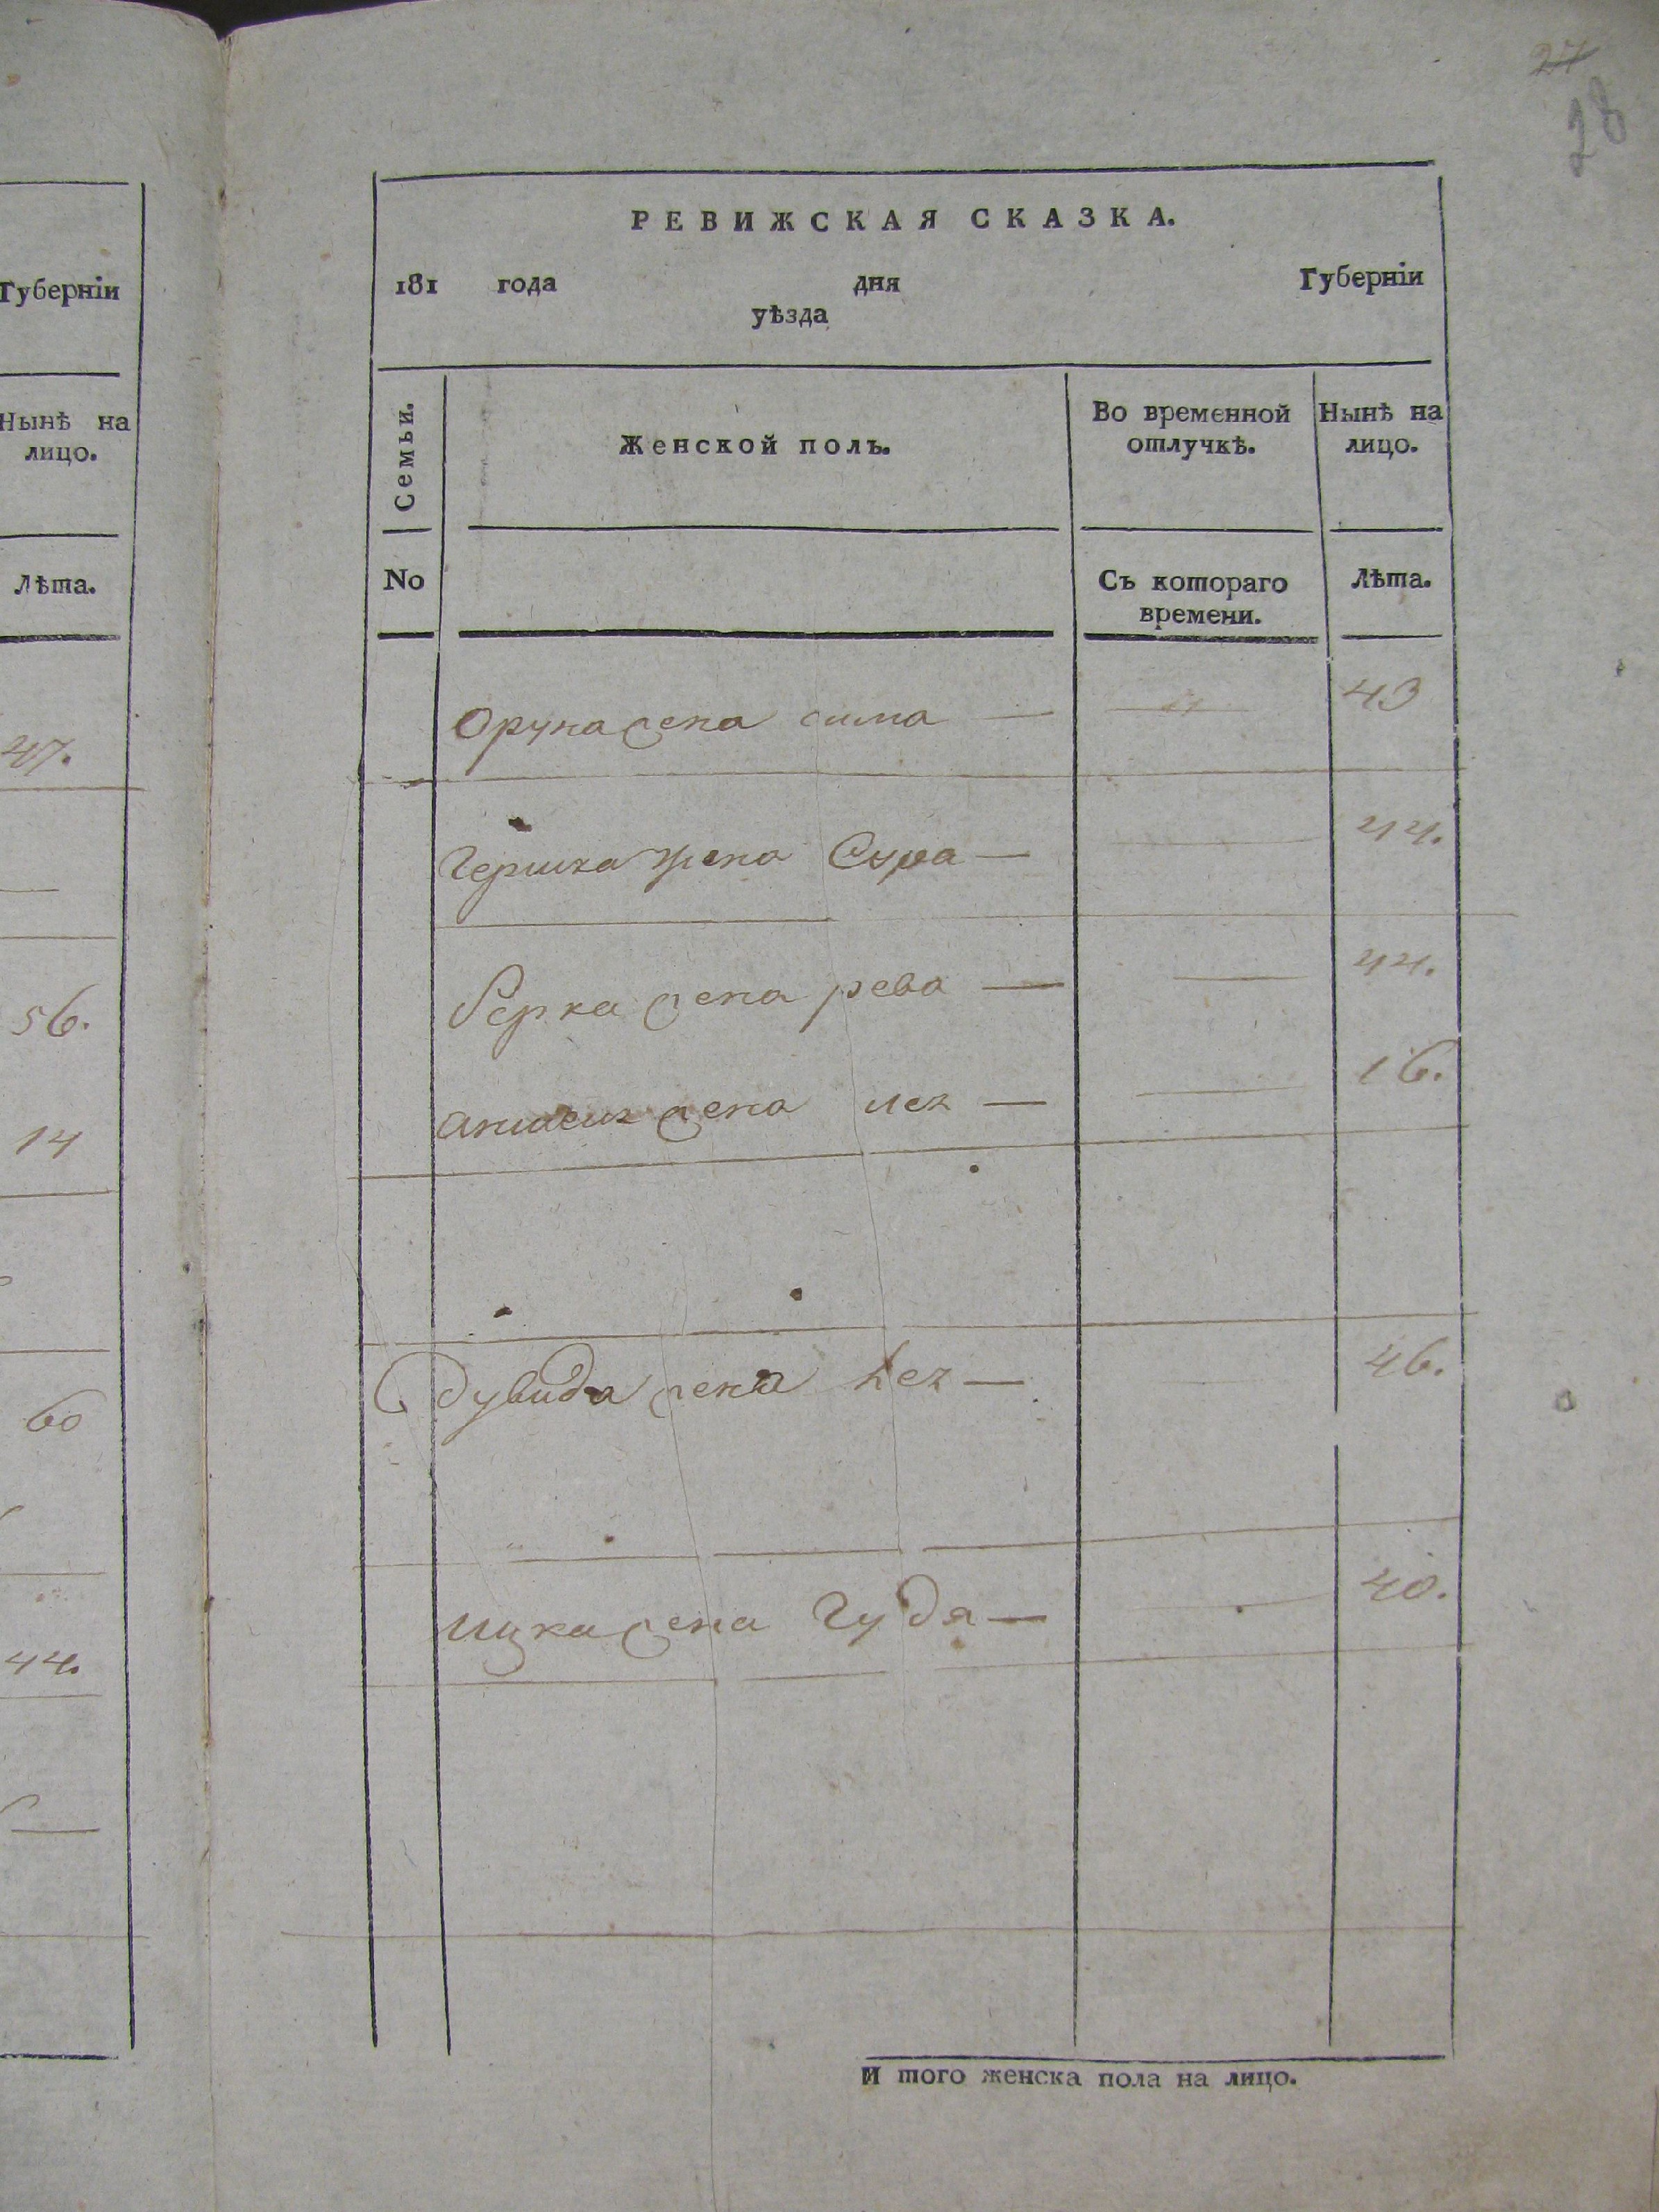 27
28
Губерніи
Нынѣ на
лицо.
Лѣта.
47.
56.
14
60
44.
РЕВИЖСКАЯ СКАЗКА.
181 года дня Губерніи
уѣзда
Семьи. Женской полъ. Во временной Нынѣ на
отлучкѣ. лицо.
No Съ котораго Лѣта.
времени.
жена сима — 43
Гершка жена Сура — 44.
Берка жена рева — 44.
жена лея — 16.
Дувида жена хея — 46.
ицка жена Гудя — 40.
И того женска пола на лицо.